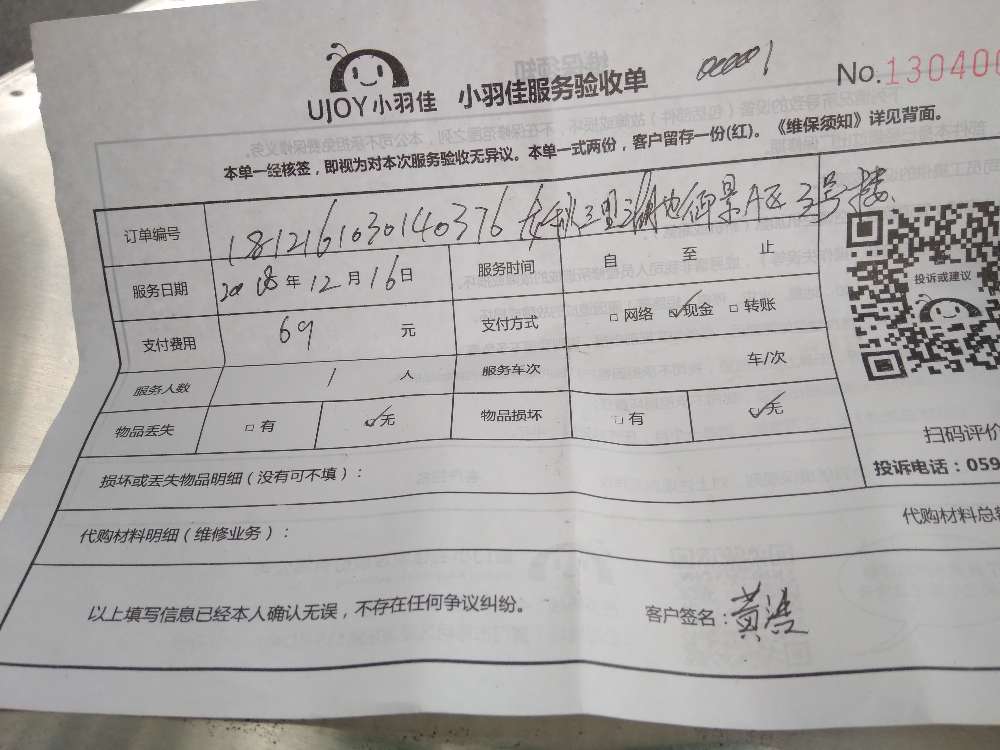 UJOY小羽佳 小羽佳服务验收单 000001 No.130400
本单一经核签，即视为对本次服务验收无异议。本单一式两份，客户留存一份(红)。《维保须知》详见背面。
订单编号 1812161030140376 三里 A区 3号楼
服务日期 2018年12月16日 服务时间 自 至 止
支付费用 69 元 支付方式 □网络 ☑现金 □转账
服务人数 1 人 服务车次 车/次
物品丢失 □有 ☑无 物品损坏 □有 ☑无
投诉或建议
扫码评价
投诉电话：059
损坏或丢失物品明细（没有可不填）：
代购材料明细（维修业务）： 代购材料总
以上填写信息已经本人确认无误，不存在任何争议纠纷。 客户签名：黄浩